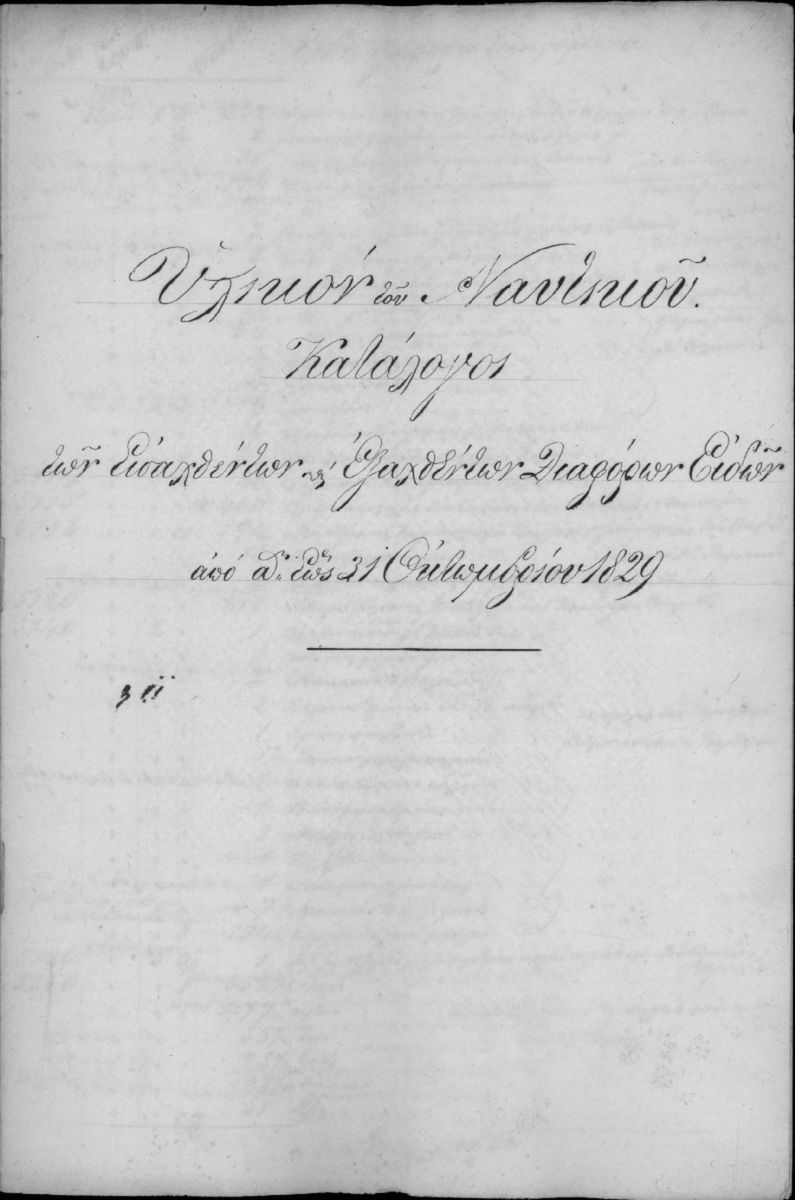 Ὑλικὸν τοῦ Ναυτικοῦ.
Κατάλογος
τῶν Εἰσαχθέντων καὶ Ἐξαχθέντων Διαφόρων Εἰδῶν
ἀπό α: ἕως 31 Ὀκτωμβρίου 1829